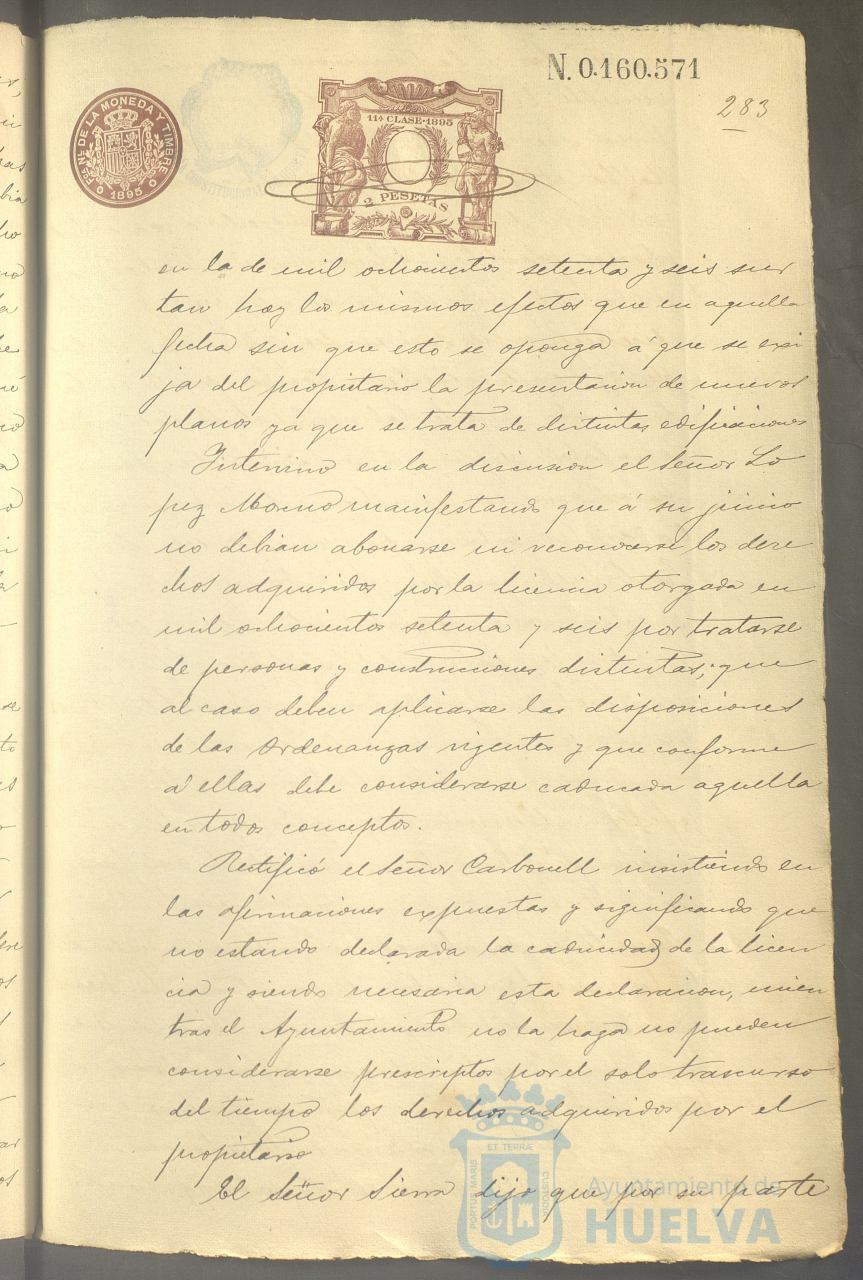 N. 0.160.571
283
FCA. NL. DE LA MONEDA Y TIMBRE
1895
11ª CLASE·1895
2 PESETAS
en la de mil ochocientos setenta y seis sur
tan hoy los mismos efectos que en aquella
fecha sin que esto se oponga á que se exi
ja del propietario la presentacion de nuevos
planos ya que se trata de distintas edificaciones
Intervino en la discusion el Señor Lo
pez Moreno manifestando que á su juicio
no debian abonarse ni reconocerse los dere
chos adquiridos por la licencia otorgada en
mil ochocientos setenta y seis por tratarse
de personas y construcciones distintas; que
al caso deben aplicarse las disposiciones
de las Ordenanzas vigentes y que conforme
á ellas debe considerarse caducada aquella
en todos conceptos.
Rectificó el Señor Carbonell insistiendo en
las afirmaciones expuestas y significando que
no estando declarada la caducidad de la licen
cia y siendo necesaria esta declaracion, mien
tras el Ayuntamiento no la haga no pueden
considerarse prescriptos por el solo trascurso
del tiempo los derechos adquiridos por el
propietario
El Señor Sierra dijo que por su parte
PORTUS MARIS
ET TERRÆ
CUSTODIA
Ayuntamiento de
HUELVA